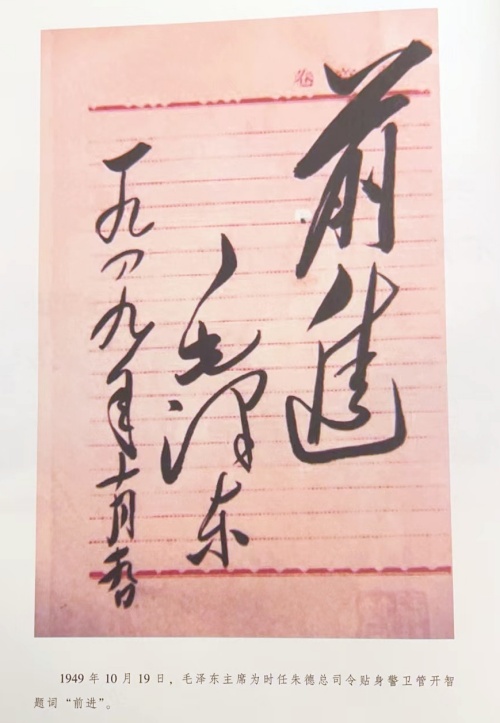 前進
毛泽东
一九四九年十月十九日
1949 年 10 月 19 日，毛泽东主席为时任朱德总司令贴身警卫管开智
题词“前进”。